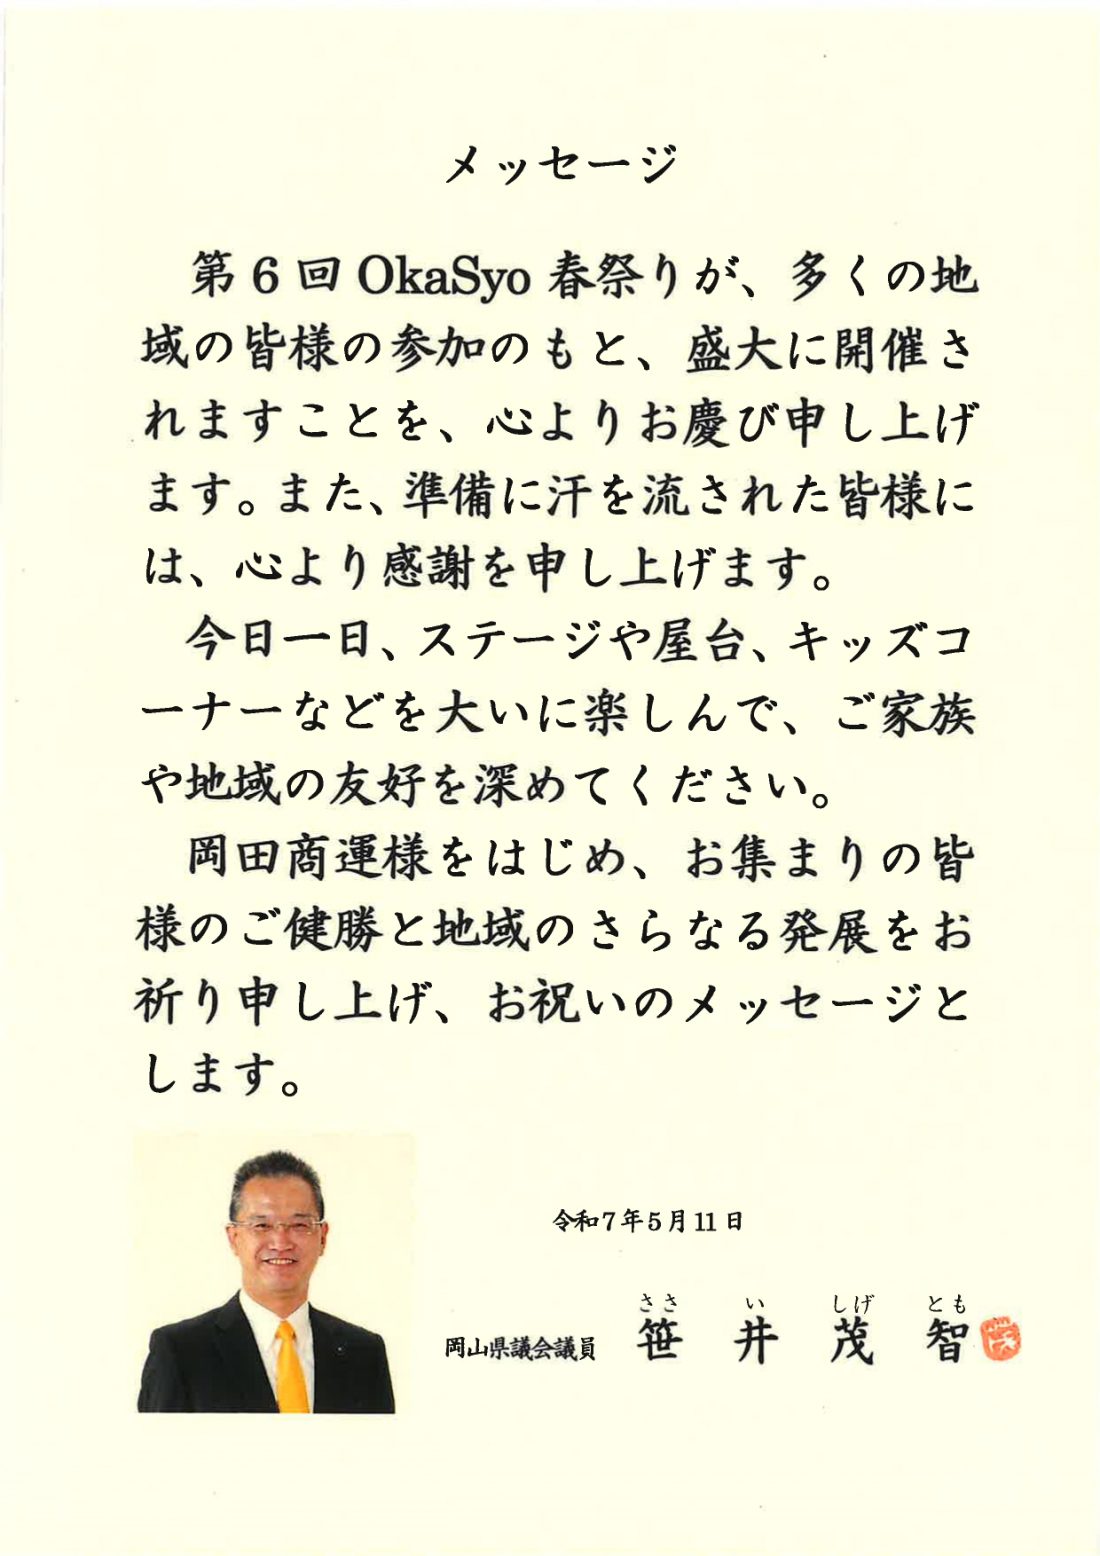 メッセージ
第6回OkaSyo春祭りが、多くの地
域の皆様の参加のもと、盛大に開催さ
れますことを、心よりお慶び申し上げ
ます。また、準備に汗を流された皆様に
は、心より感謝を申し上げます。
今日一日、ステージや屋台、キッズコ
ーナーなどを大いに楽しんで、ご家族
や地域の友好を深めてください。
岡田商運様をはじめ、お集まりの皆
様のご健勝と地域のさらなる発展をお
祈り申し上げ、お祝いのメッセージと
します。
令和7年5月11日
ささ い しげ とも
岡山県議会議員 笹井茂智